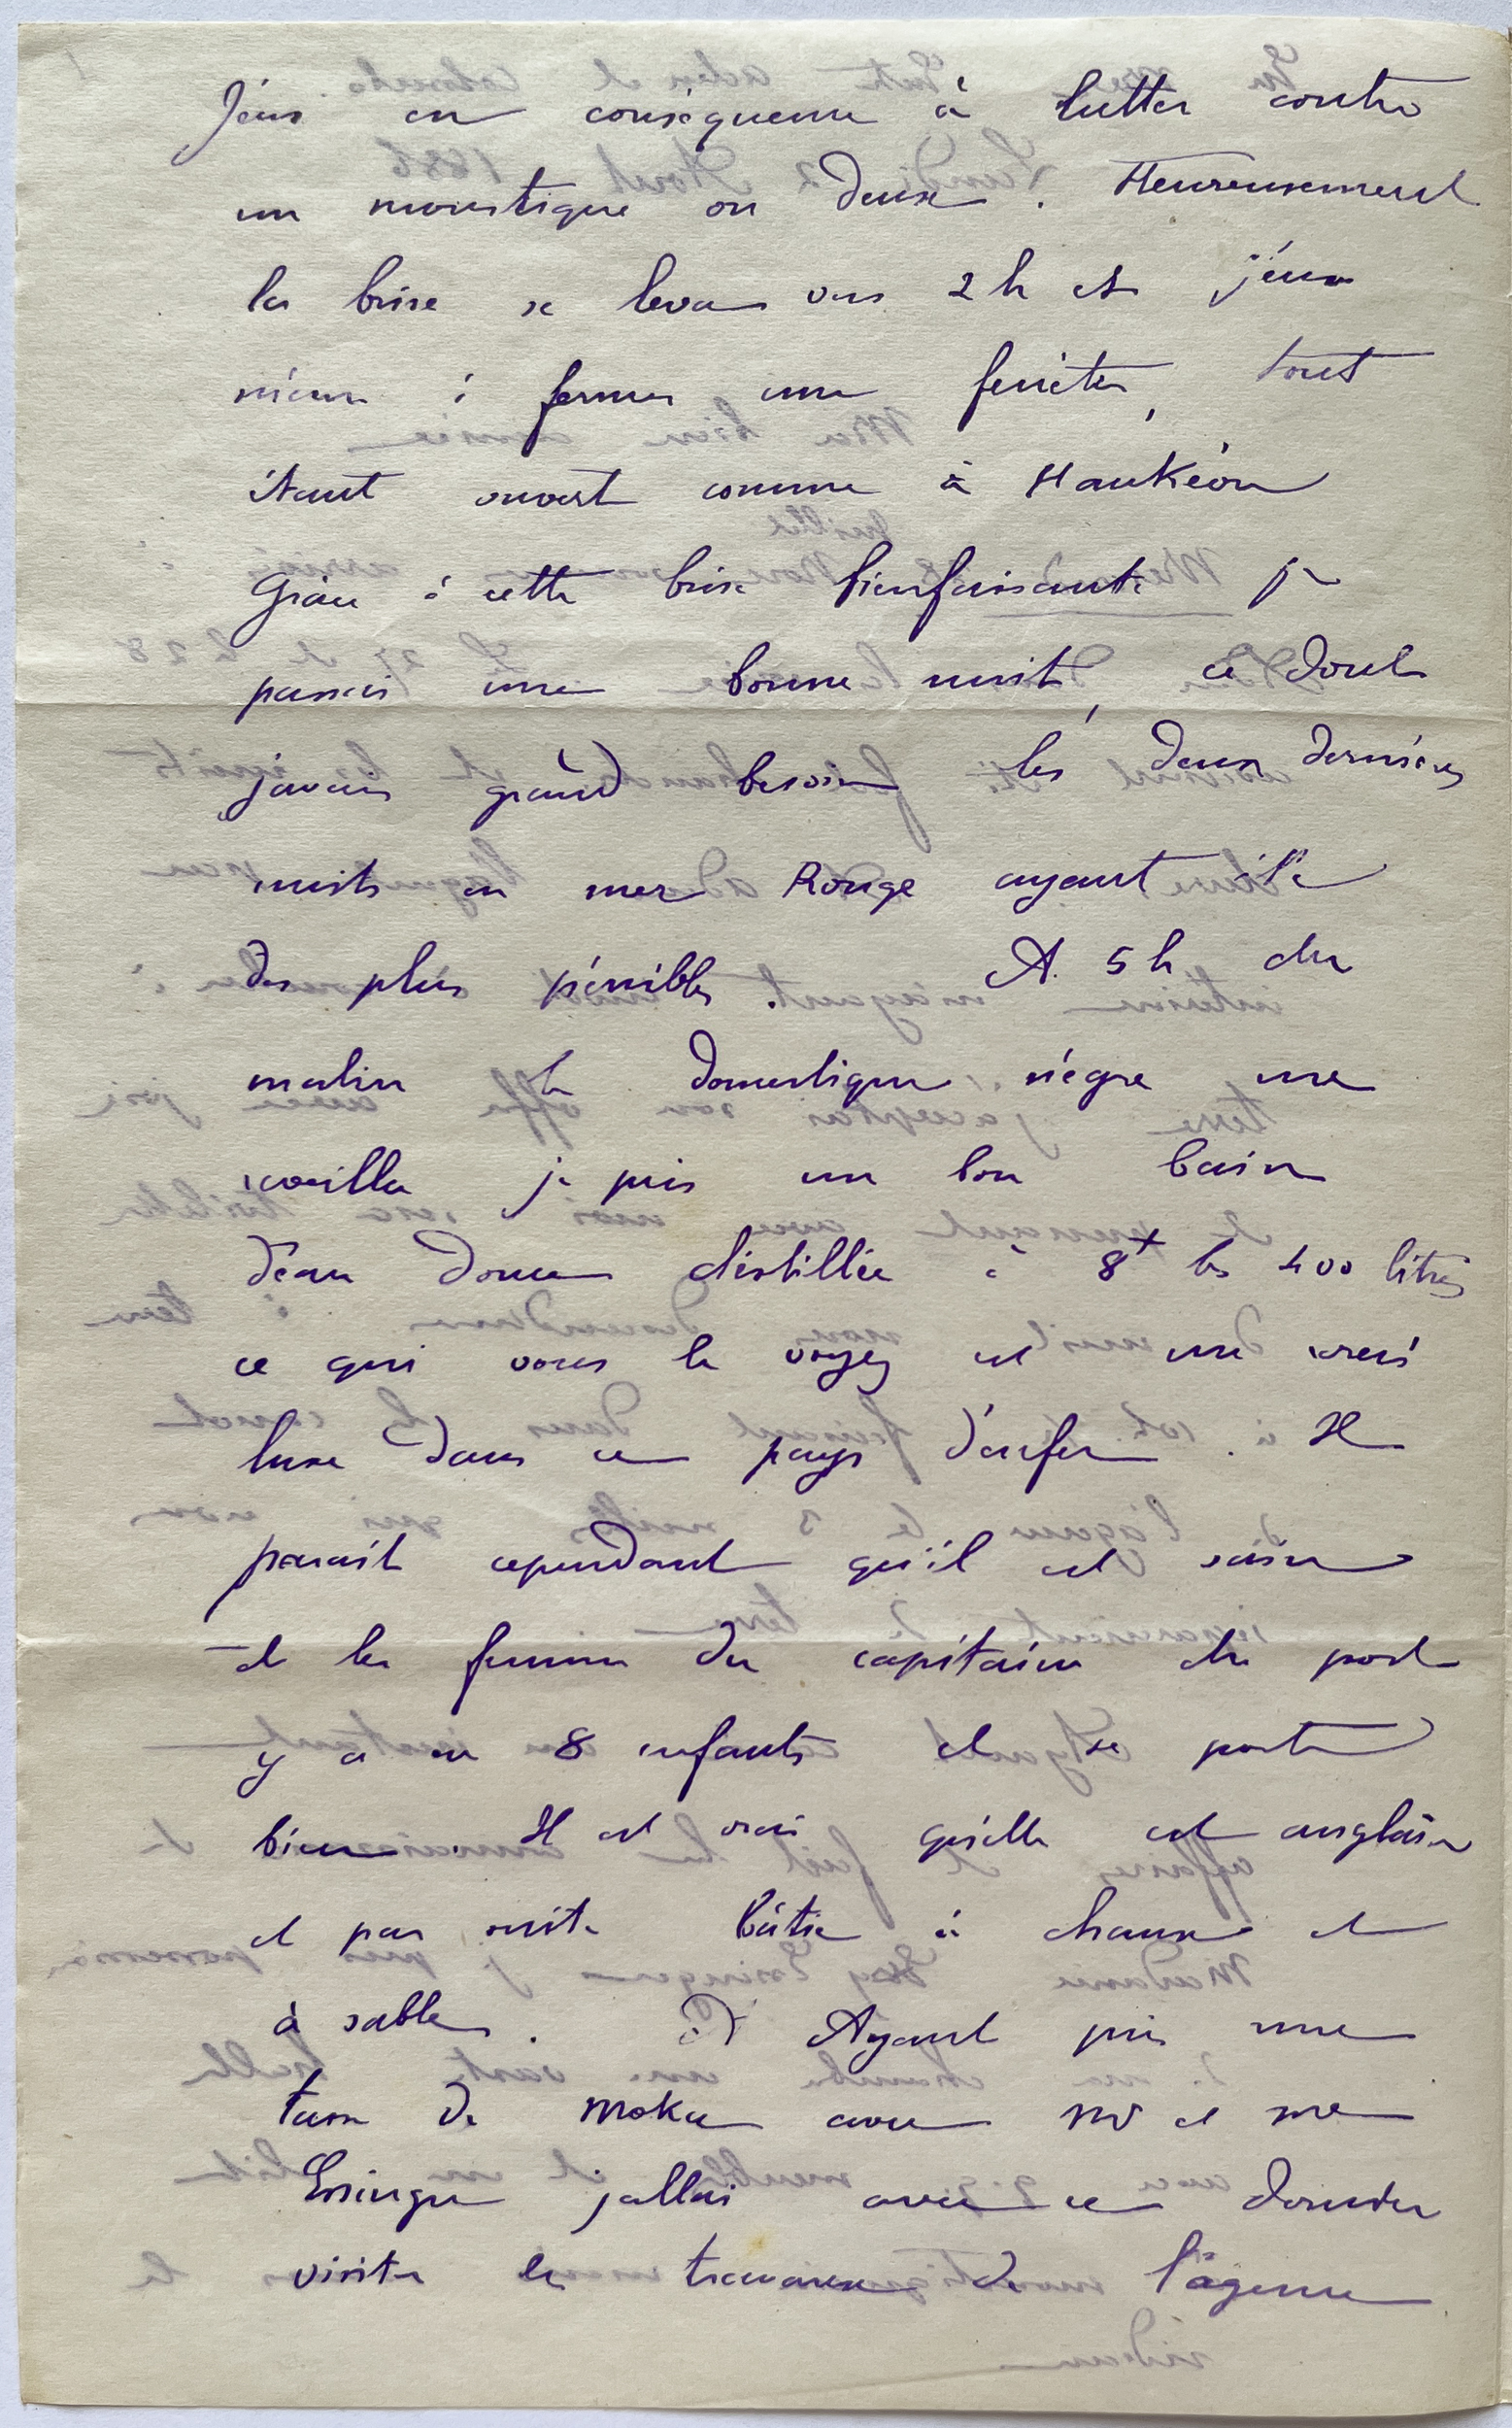 J'eus en conséquence à lutter contre
un moustique ou deux. Heureusement
la brise se leva vers 2 h et j'eus
même à fermer une fenêtre, tout
étant ouvert comme à Hankéou
Grâce à cette brise bienfaisante je
passai une bonne nuit, ce dont
j'avais grand besoin les deux dernières
nuits en mer Rouge ayant été
des plus pénibles. A 5 h du
matin le domestique nègre me
réveilla je pris un bon bain
d'eau douce distillée à 8 les 400 litres
ce qui vous le voyez est un vrai
luxe dans ce pays d'enfer. Il
parait cependant qu'il est sain
et la femme du capitaine du port
y a eu 8 enfants et se porte
bien. Il est vrai qu'elle est anglaise
et par suite bâtie à chaux et
à sable. Ayant pris une
tasse de moka avec Mr et Me
j'allai avec ce dernier
visiter les travaux de l'agence